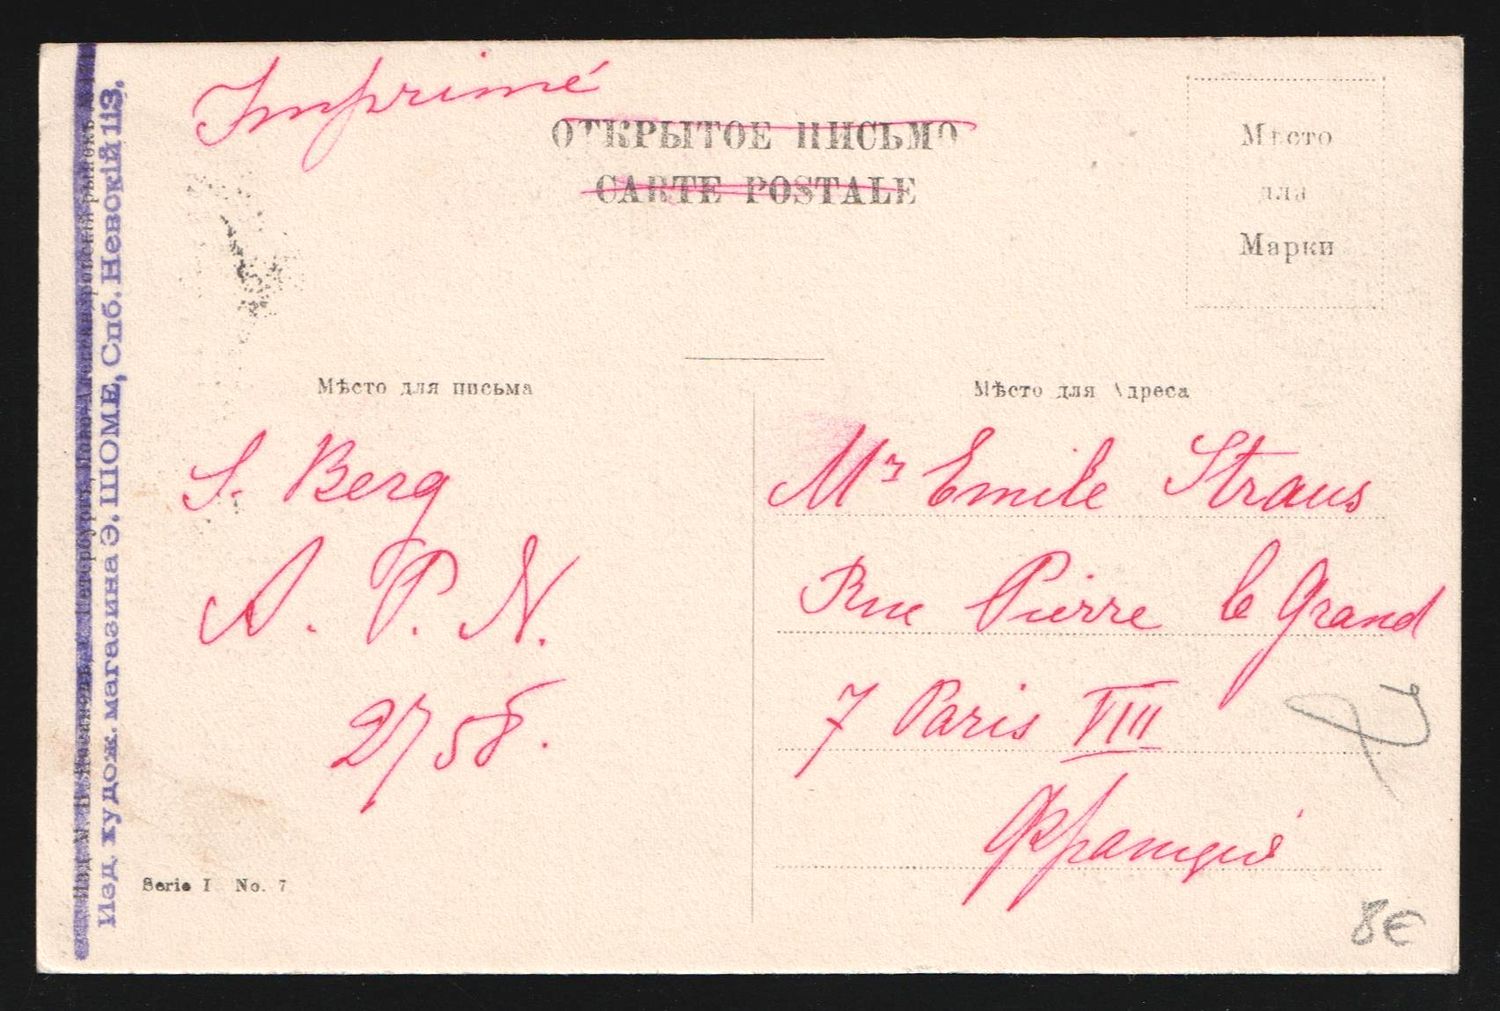 Imprimé
ОТКРЫТОЕ ПИСЬМО
CARTE POSTALE
Мѣсто
для
Марки
Мѣсто для письма
Мѣсто для Адреса
S. Berg
A. P. N.
2758.
Mr Emile Straus
Rue Pierre le Grand
7 Paris VIII
Франція
Serie I No. 7
8€
Изд. худож. магазина Э. ШОМЕ, Спб. Невскій 113.